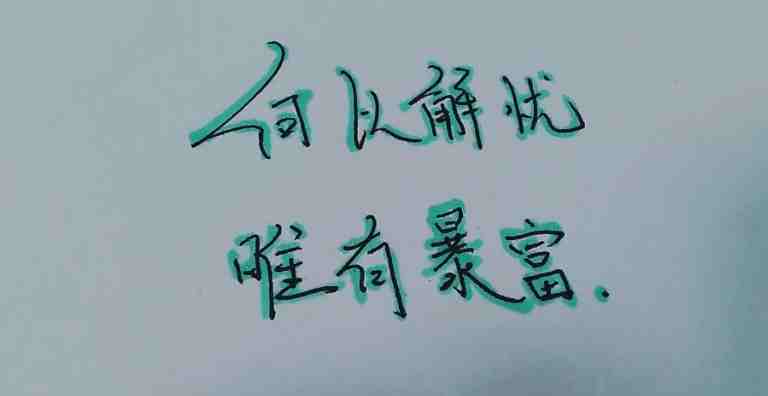 何以解忧
唯有暴富.